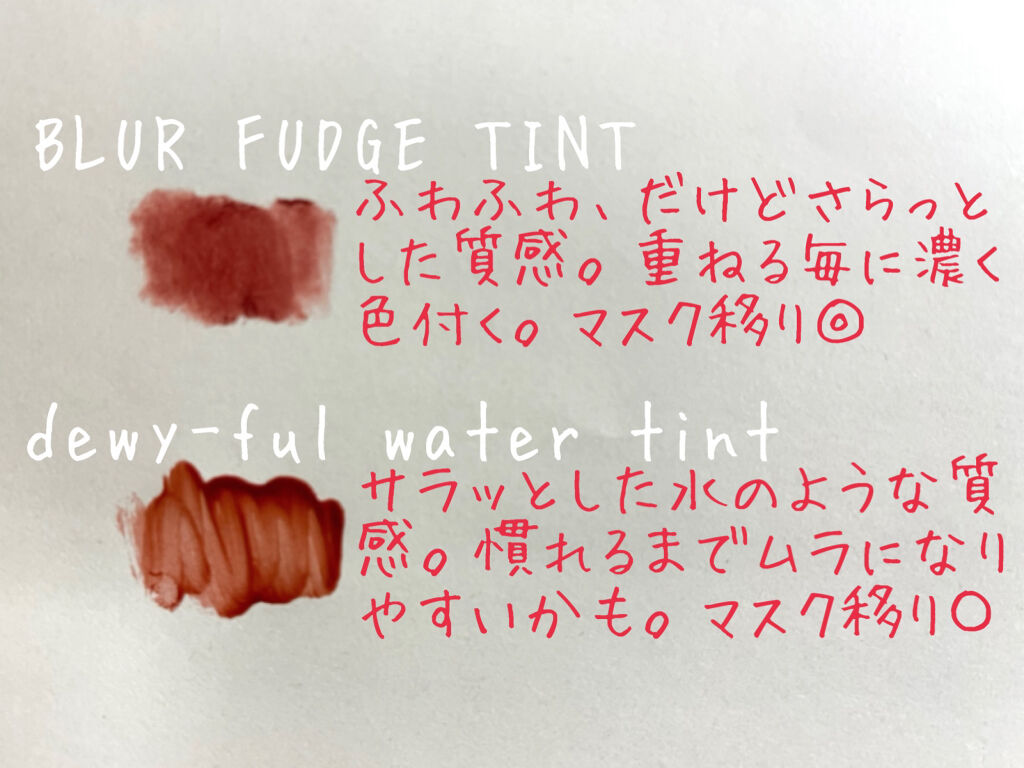 BLUR FUDGE TINT
ふわふわ、だけどさらっと
した質感。重ねる毎に濃く
色付く。マスク移り◎
dewy-ful water tint
サラッとした水のような質
感。慣れるまでムラになり
やすいかも。マスク移り〇